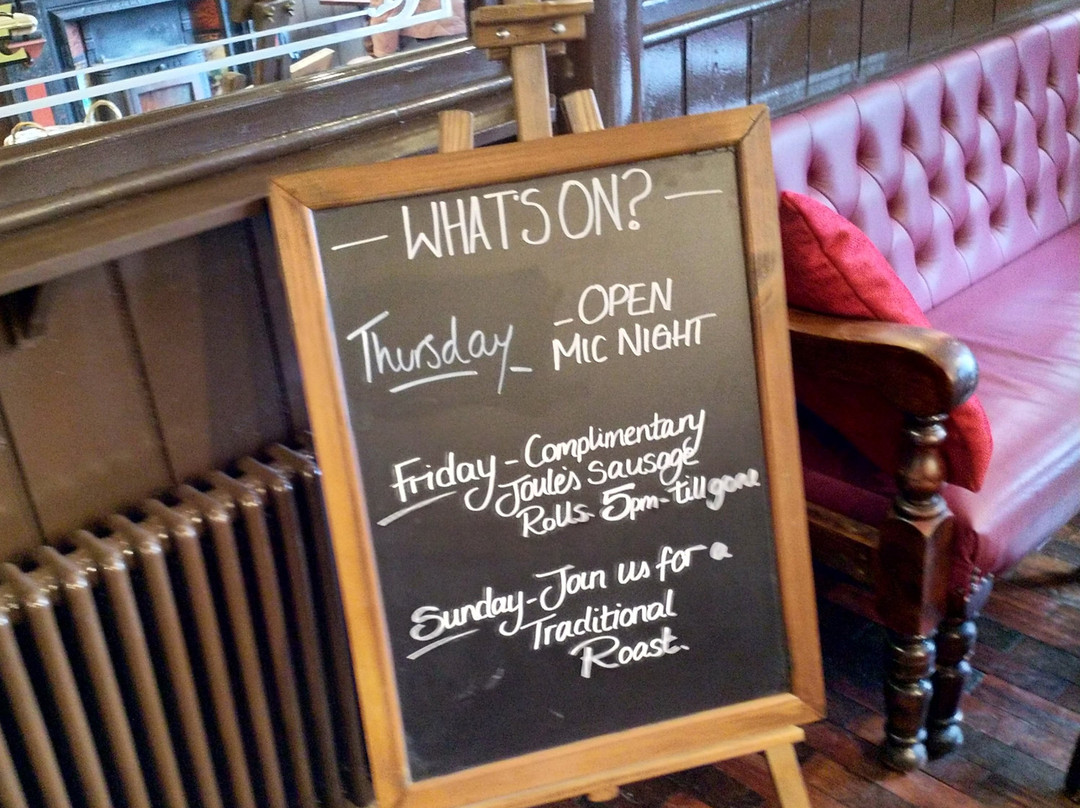 — WHAT'S ON? —
Thursday - OPEN
MIC NIGHT
Friday - Complimentary
Joule's Sausage
Rolls. 5pm - till gone
Sunday - Join us for a
Traditional
Roast.